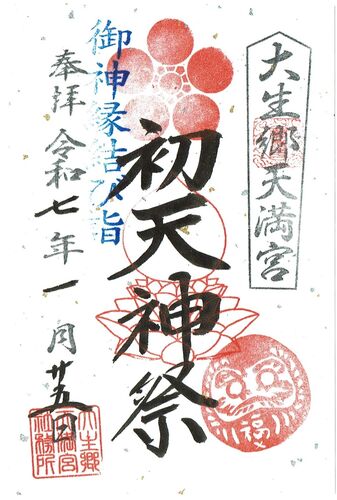 大生郷天満宮
初天神祭
御神縁結び詣
奉拝 令和七年一月廿五日
福
大生郷
天満宮
社務所